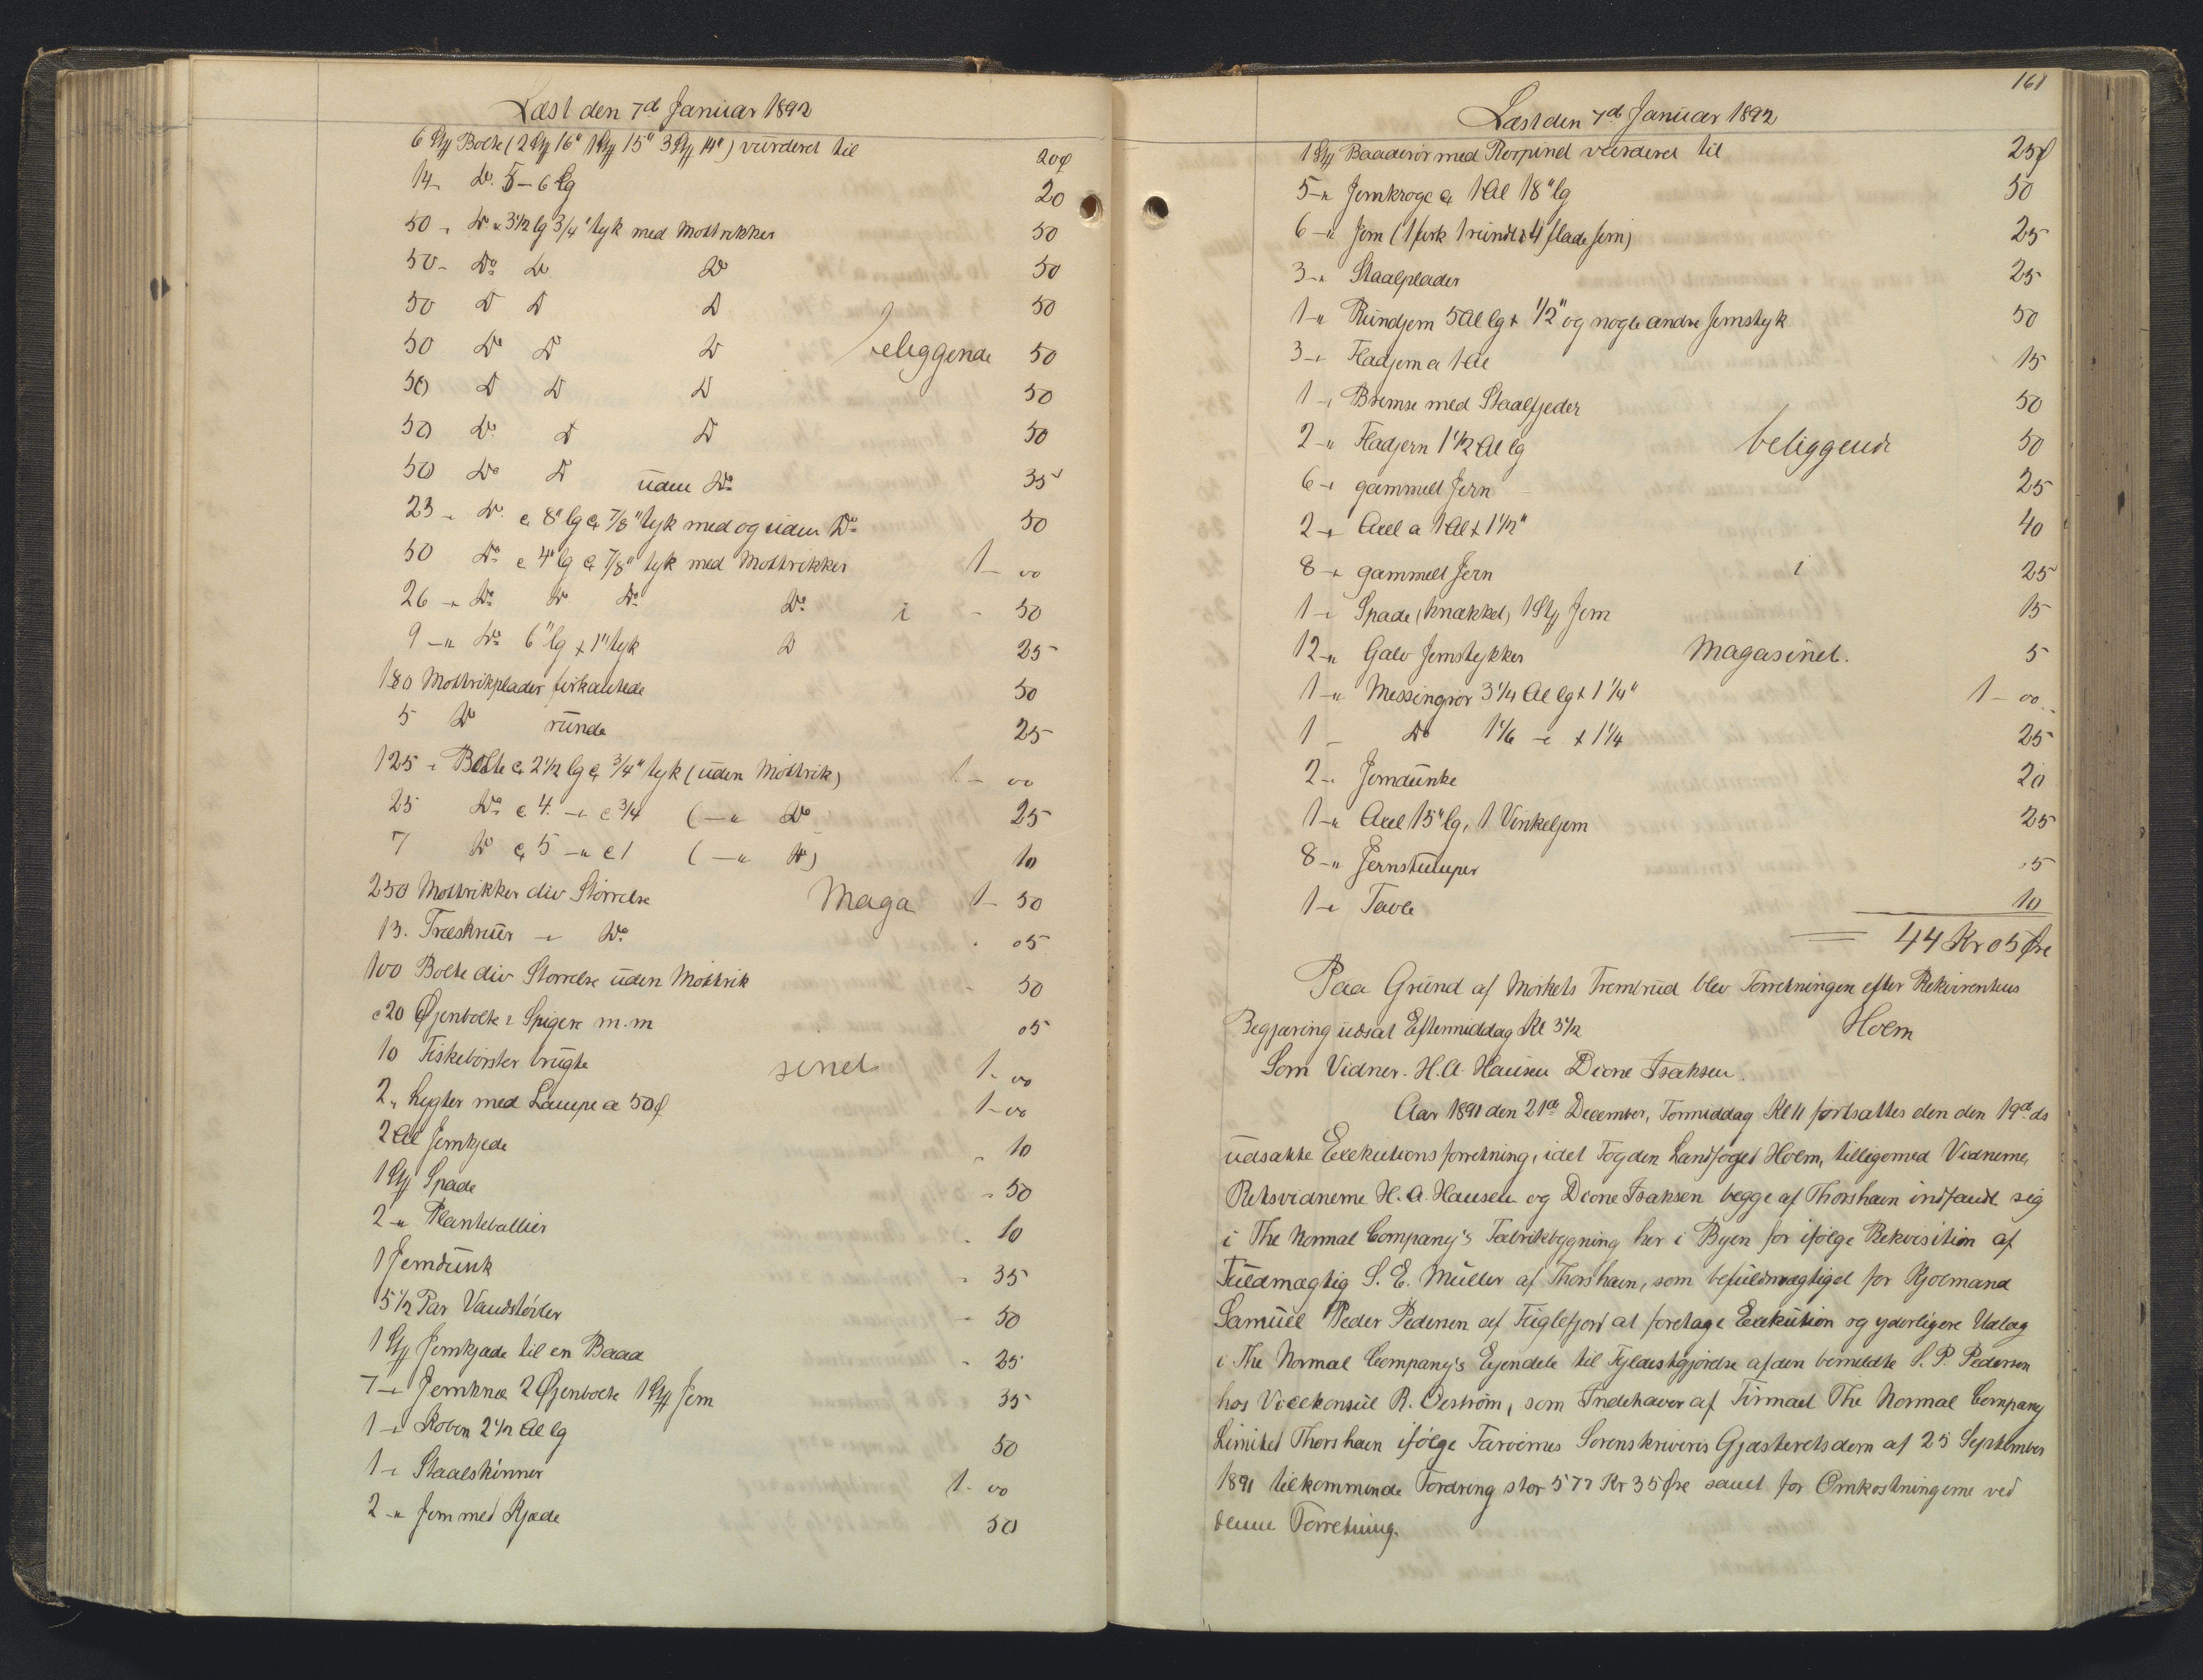 Læst den 7de Januar 1892
6 Stk Bolte (2 Stk 16" 1 Stk 15" 3 Stk 14") vurderet til 20 ø
14 - Do 5-6 lg 20
50 - Do a 3 1/2 lg 3/4" tyk med Møttrikker 50
50 - Do Do Do 50
50 D D D 50
50 Do D D beliggende 50
50 D D D 50
50 Do D D 50
50 Do D uden Do 35
23 - Do c 8" lg c 7/8" tyk med og uden Do 50
50 Do c 4" lg c 7/8" tyk med Møttrikker 1- 00
26 -"- Do Do Do Do i - 50
9 -"- Do 6" lg x 1" tyk D 25
180 Møttrikplader firkantede 50
5 Do runde 25
125 - Bolte c 2 1/2 lg c 3/4" tyk (uden Møttrik) 1- 00
25 Do c 4 -"- c 3/4 ( -"- Do 25
7 Do c 5 -"- c 1 ( -"- Do) 10
250 Møttrikker div Størrelse Maga 1- 50
13. Træskruer -"- Do 05
100 Bolte div Størrelse uden Møttrik 50
c 20 Øjenbolte & Spigere m.m 05
10 Fiskebørster brugte sinet 1- 00
2 " Lygter med Lampe a 50 ø 1- 00
2 Al Jernkjede - 10
1 Stk Spade - 50
2 -"- Planteballier - 10
1 Jerndunk - 35
5 1/2 Par Vandstøvler - 50
1 Stk Jernkjæde til en Baad - 25
7 -"- Jernknæ 2 Øjenbolte 1 Stk Jern 35
1 -"- Koben 2 1/2 Al lg 50
1 -"- Staalskinner 1- 00
2 -"- Jern med Kjæde 50
161
Læst den 7de Januar 1892
1 Stk Baaderor med Rorpind vurderet til 25 ø
5 -"- Jernkroge a 1 Al 18" lg 50
6 -"- Jern (1 firk 1 rundt & 4 flade Jern) 25
3 -"- Staalplader 25
1 -"- Rundjern 5 Al lg x 1/2" og nogle andre Jernstyk 50
3 -"- Fladjern a 1 Al 15
1 -"- Bremse med Staalfjeder 50
2 -"- Fladjern 1 1/2 Al lg beliggende 50
6 -"- gammelt Jern 25
2 -"- Axel a 1 Al x 1 1/2" 40
8 -"- gammelt Jern i 25
1 -"- Spade (knækket) 1 Stk Jern 15
12 -"- Galv Jernstykker Magasinet. 5
1 -"- Messingrør 3 1/4 Al lg x 1 1/4" 1- 00
1 - Do 1 1/6 -"- x 1 1/4 25
2 -"- Jerndunke 20
1 -"- Axel 15" lg, 1 Vinkeljern 25
8 -"- Jernstumper 5
1 -"- Tavle 10
44 Kr 05 Øre
Paa Grund af Mørkets Frembrud blev Forretningen efter Rekvirentens
Begjæring udsat Eftermiddag Kl 3 1/2 Holm
Som Vidner. H. A. Hansen Dione Isaksen.
Aar 1891 den 21de December, Formiddag Kl 11 fortsattes den den 19de ds
udsatte Exekutionsforretning, idet Fogden Landfoged Holm, tilligemed Vidnerne,
Retsvidnerne H. A. Hansen og Dione Isaksen begge af Thorshavn indfandt sig
i The Normal Company's Fabrikbygning her i Byen for ifølge Rekvisition af
Fuldmægtig S. E. Müller af Thorshavn, som befuldmægtiget for Kjøbmand
Samuel Peder Pedersen af Fuglefjord at foretage Exekution og yderligere Udlæg
i The Normal Company's Ejendele til Fyldestgjørelse af den bemeldte S. P. Pedersen
hos Vicekonsul R. Oestrøm, som Indehaver af Firmaet The Normal Company
Limited Thorshavn ifølge Færøernes Sorenskriveris Gjæsteretsdom af 25 September
1891 tilkommende Fordring stor 577 Kr 35 Øre samt for Omkostningerne ved
denne Forretning.